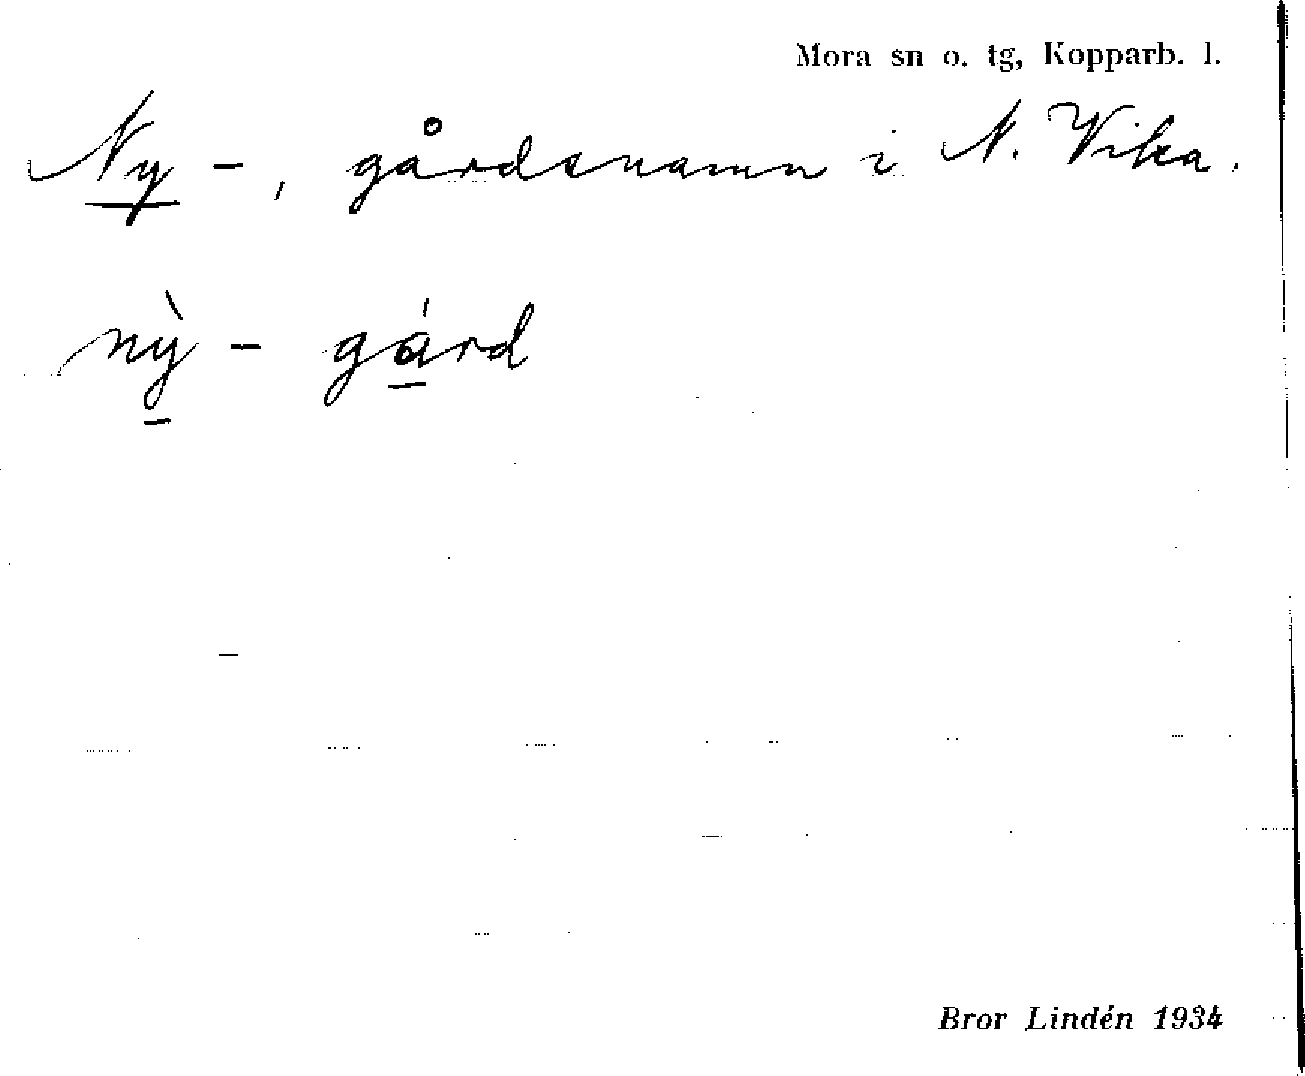 Mora sn o. tg, Kopparb. l.
Ny -, gårdsnamn i N. Vika.
nỳ - gárd
Bror Lindén 1934